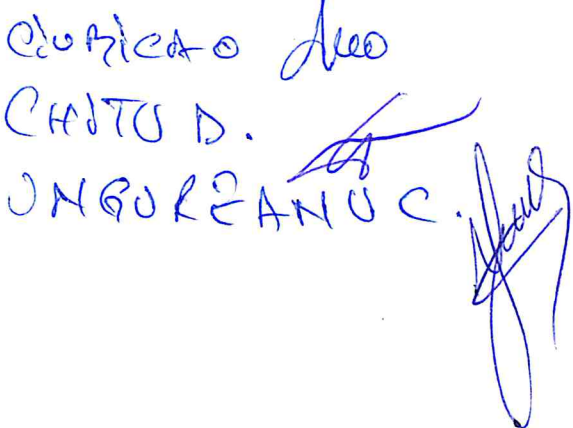 CIURICA O
CHITU D.
UNGUREANU C.